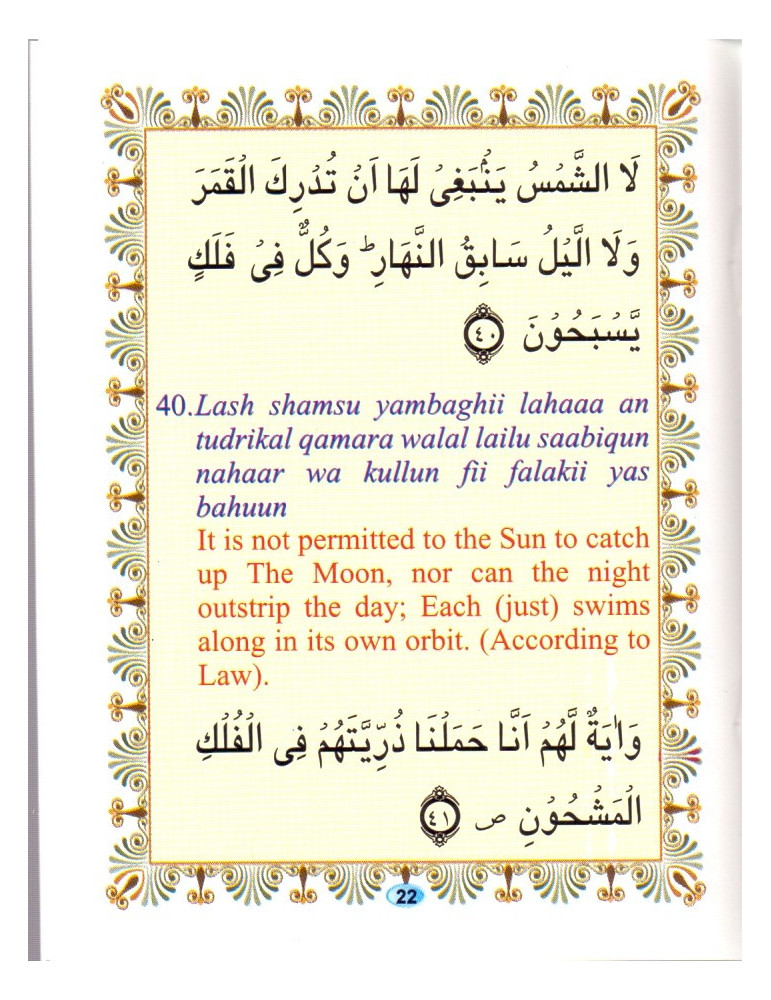 لَا الشَّمۡسُ يَنۡۢبَغِىۡ لَهَا اَنۡ تُدۡرِكَ الۡقَمَرَ
وَلَا الَّيۡلُ سَابِقُ النَّهَارِ‌ؕ وَكُلٌّ فِىۡ فَلَكٍ
يَّسۡبَحُوۡنَ ﴿٤٠﴾
40.Lash shamsu yambaghii lahaaa an
tudrikal qamara walal lailu saabiqun
nahaar wa kullun fii falakii yas
bahuun
It is not permitted to the Sun to catch
up The Moon, nor can the night
outstrip the day; Each (just) swims
along in its own orbit. (According to
Law).
وَاٰيَةٌ لَّهُمۡ اَنَّا حَمَلۡنَا ذُرِّيَّتَهُمۡ فِى الۡفُلۡكِ
الۡمَشۡحُوۡنِ ص ﴿٤١﴾
22